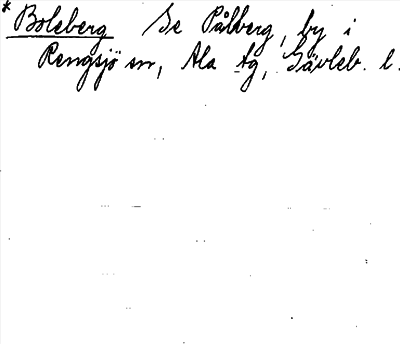 *Boleberg Se Pålberg, by i
Rengsjö sn, Ala tg, Gävleb. l.